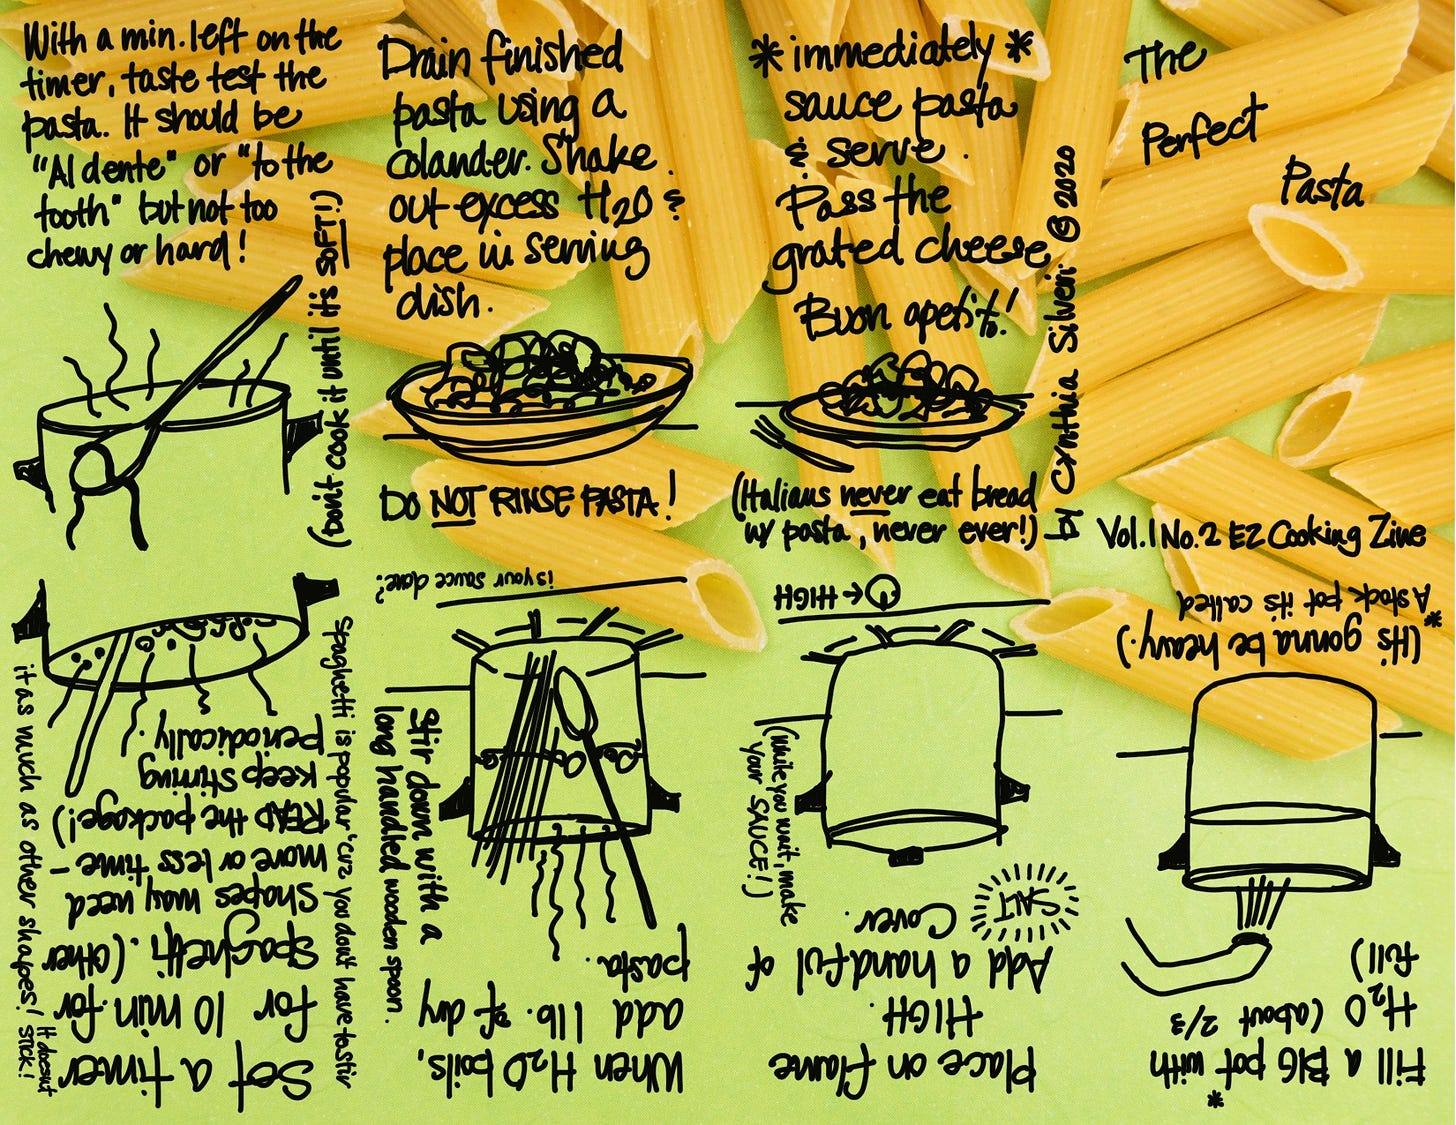 The
Perfect
Pasta
Vol.1 No.2 EZ Cooking Zine
by Cynthia Silveri © 2020
Fill a BIG pot* with
H2O (about 2/3
full)
(It's gonna be heavy.)
*A stock pot it's called
Place on flame
HIGH.
Add a handful of
SALT
Cover.
(while you wait, make
your SAUCE!)
HIGH
When H2O boils,
add 1 lb. of dry
pasta.
Stir down with a
long handled wooden spoon.
is your sauce done?
Set a timer
for 10 min for
spaghetti. (Other
shapes may need
more or less time -
READ the package!)
Keep stirring
periodically.
Spaghetti is popular 'cuz you don't have to stir
it as much as other shapes! It doesn't
stick!
With a min. left on the
timer, taste test the
pasta. It should be
"Al dente" or "to the
tooth" but not too
chewy or hard!
(Don't cook it until it's SOFT!)
Drain finished
pasta using a
colander. Shake
out excess H2O &
place in serving
dish.
DO NOT RINSE PASTA!
*immediately*
sauce pasta
& serve.
Pass the
grated cheese
Buon apetit!
(Italians never eat bread
w/ pasta, never ever!)